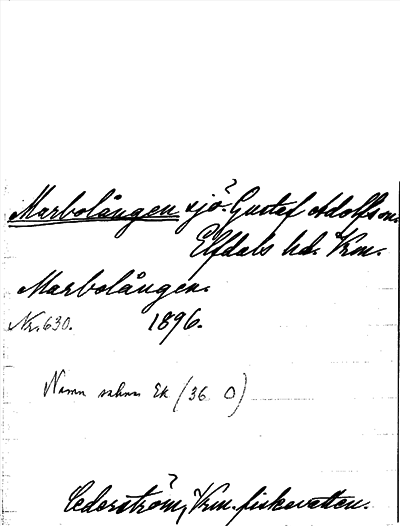 Marbolången sjö. Gustaf Adolfs sn.
Elfdals hd. Vrm.
Marbolången.
Nr. 630. 1896.
Namn saknas Ek (36 O)
Cederström, Vrm. fiskevatten.